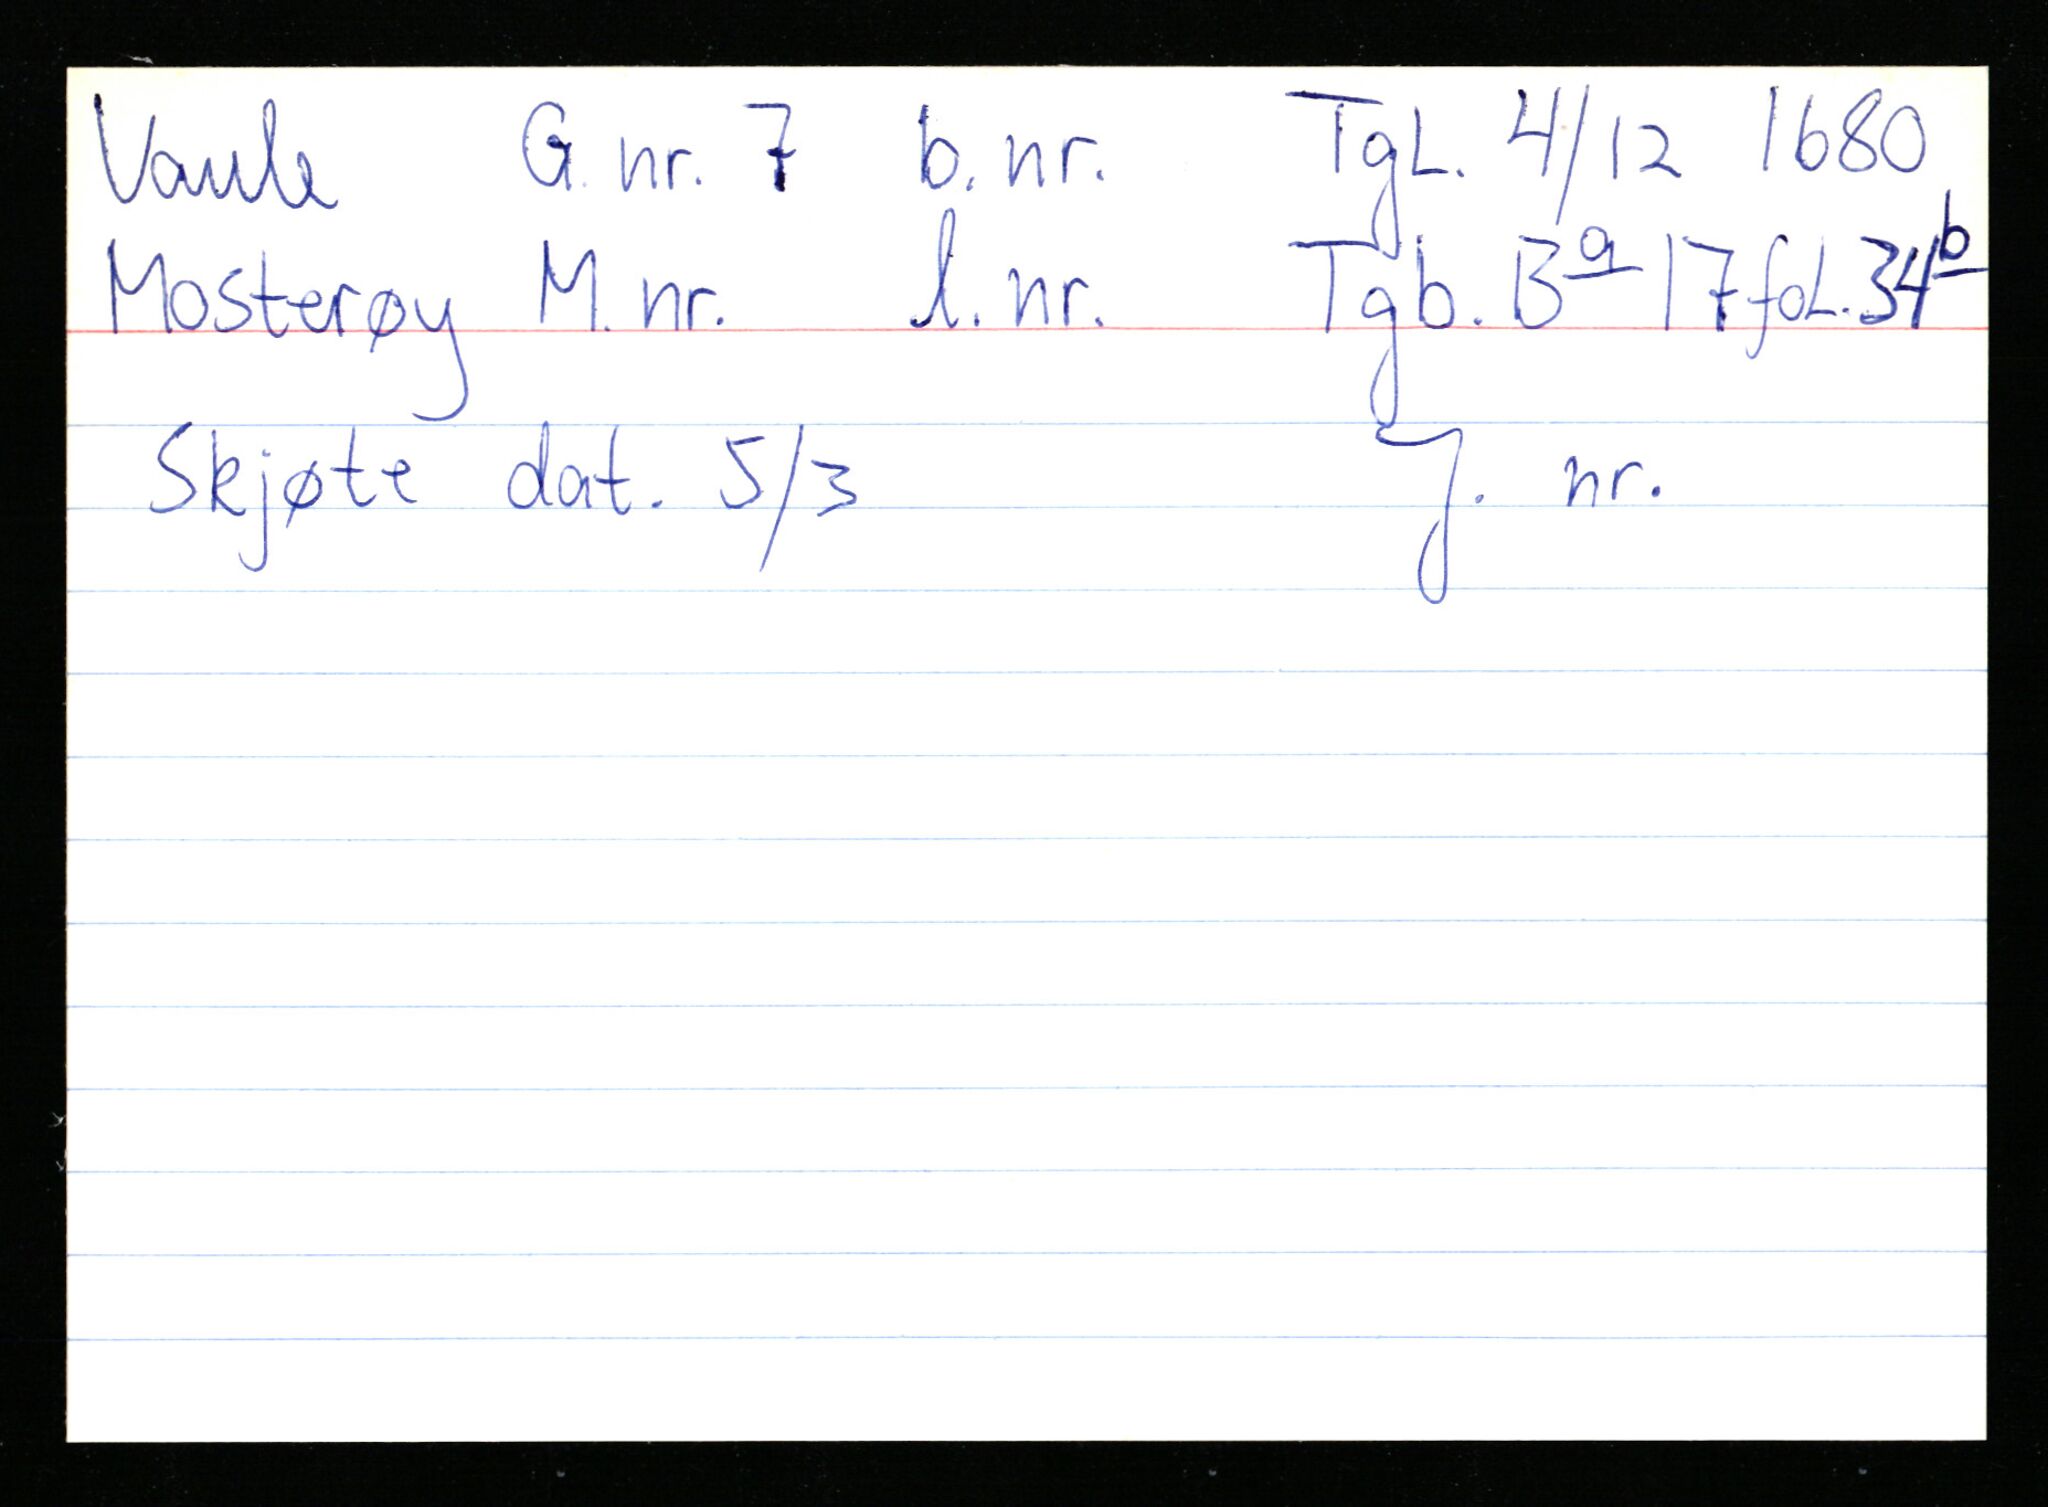 Vaule G. nr. 7 b. nr. TgL. 4/12 1680
Mosterøy M. nr. l. nr. Tgb. Ba 17 foL. 34b
Skjøte dat. 5/3 J. nr.